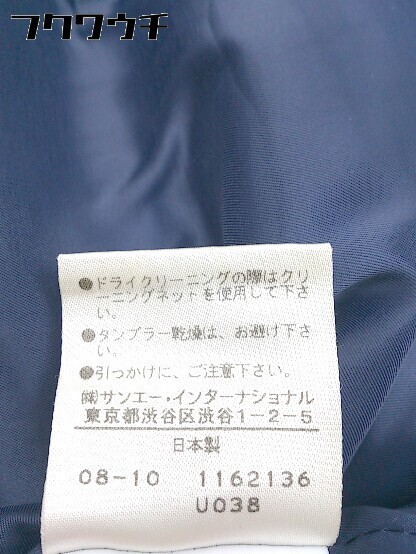 フクワウチ
●ドライクリーニングの際はクリ
ーニングネットを使用して下さ
い。
●タンブラー乾燥は、お避け下さ
い。
●引っかけに、ご注意下さい。
㈱サンエー・インターナショナル
東京都渋谷区渋谷1-2-5
日本製
08-10 1162136
U038